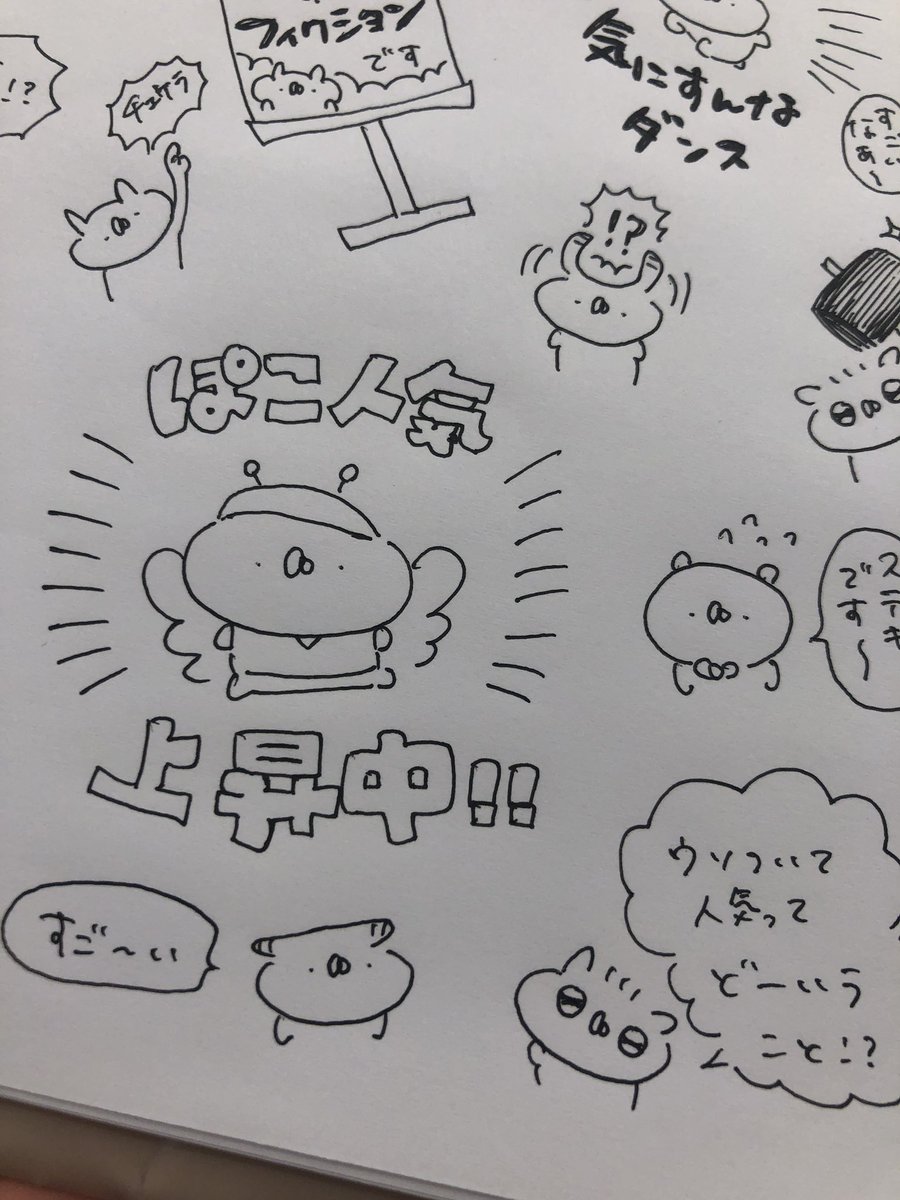 フィクション
です
!?
気にすんな
ダンス
!?
ぽこ人気
上昇中!!
ステキ
です〜
すご〜い
ウソついて
人気って
どーいう
こと!?